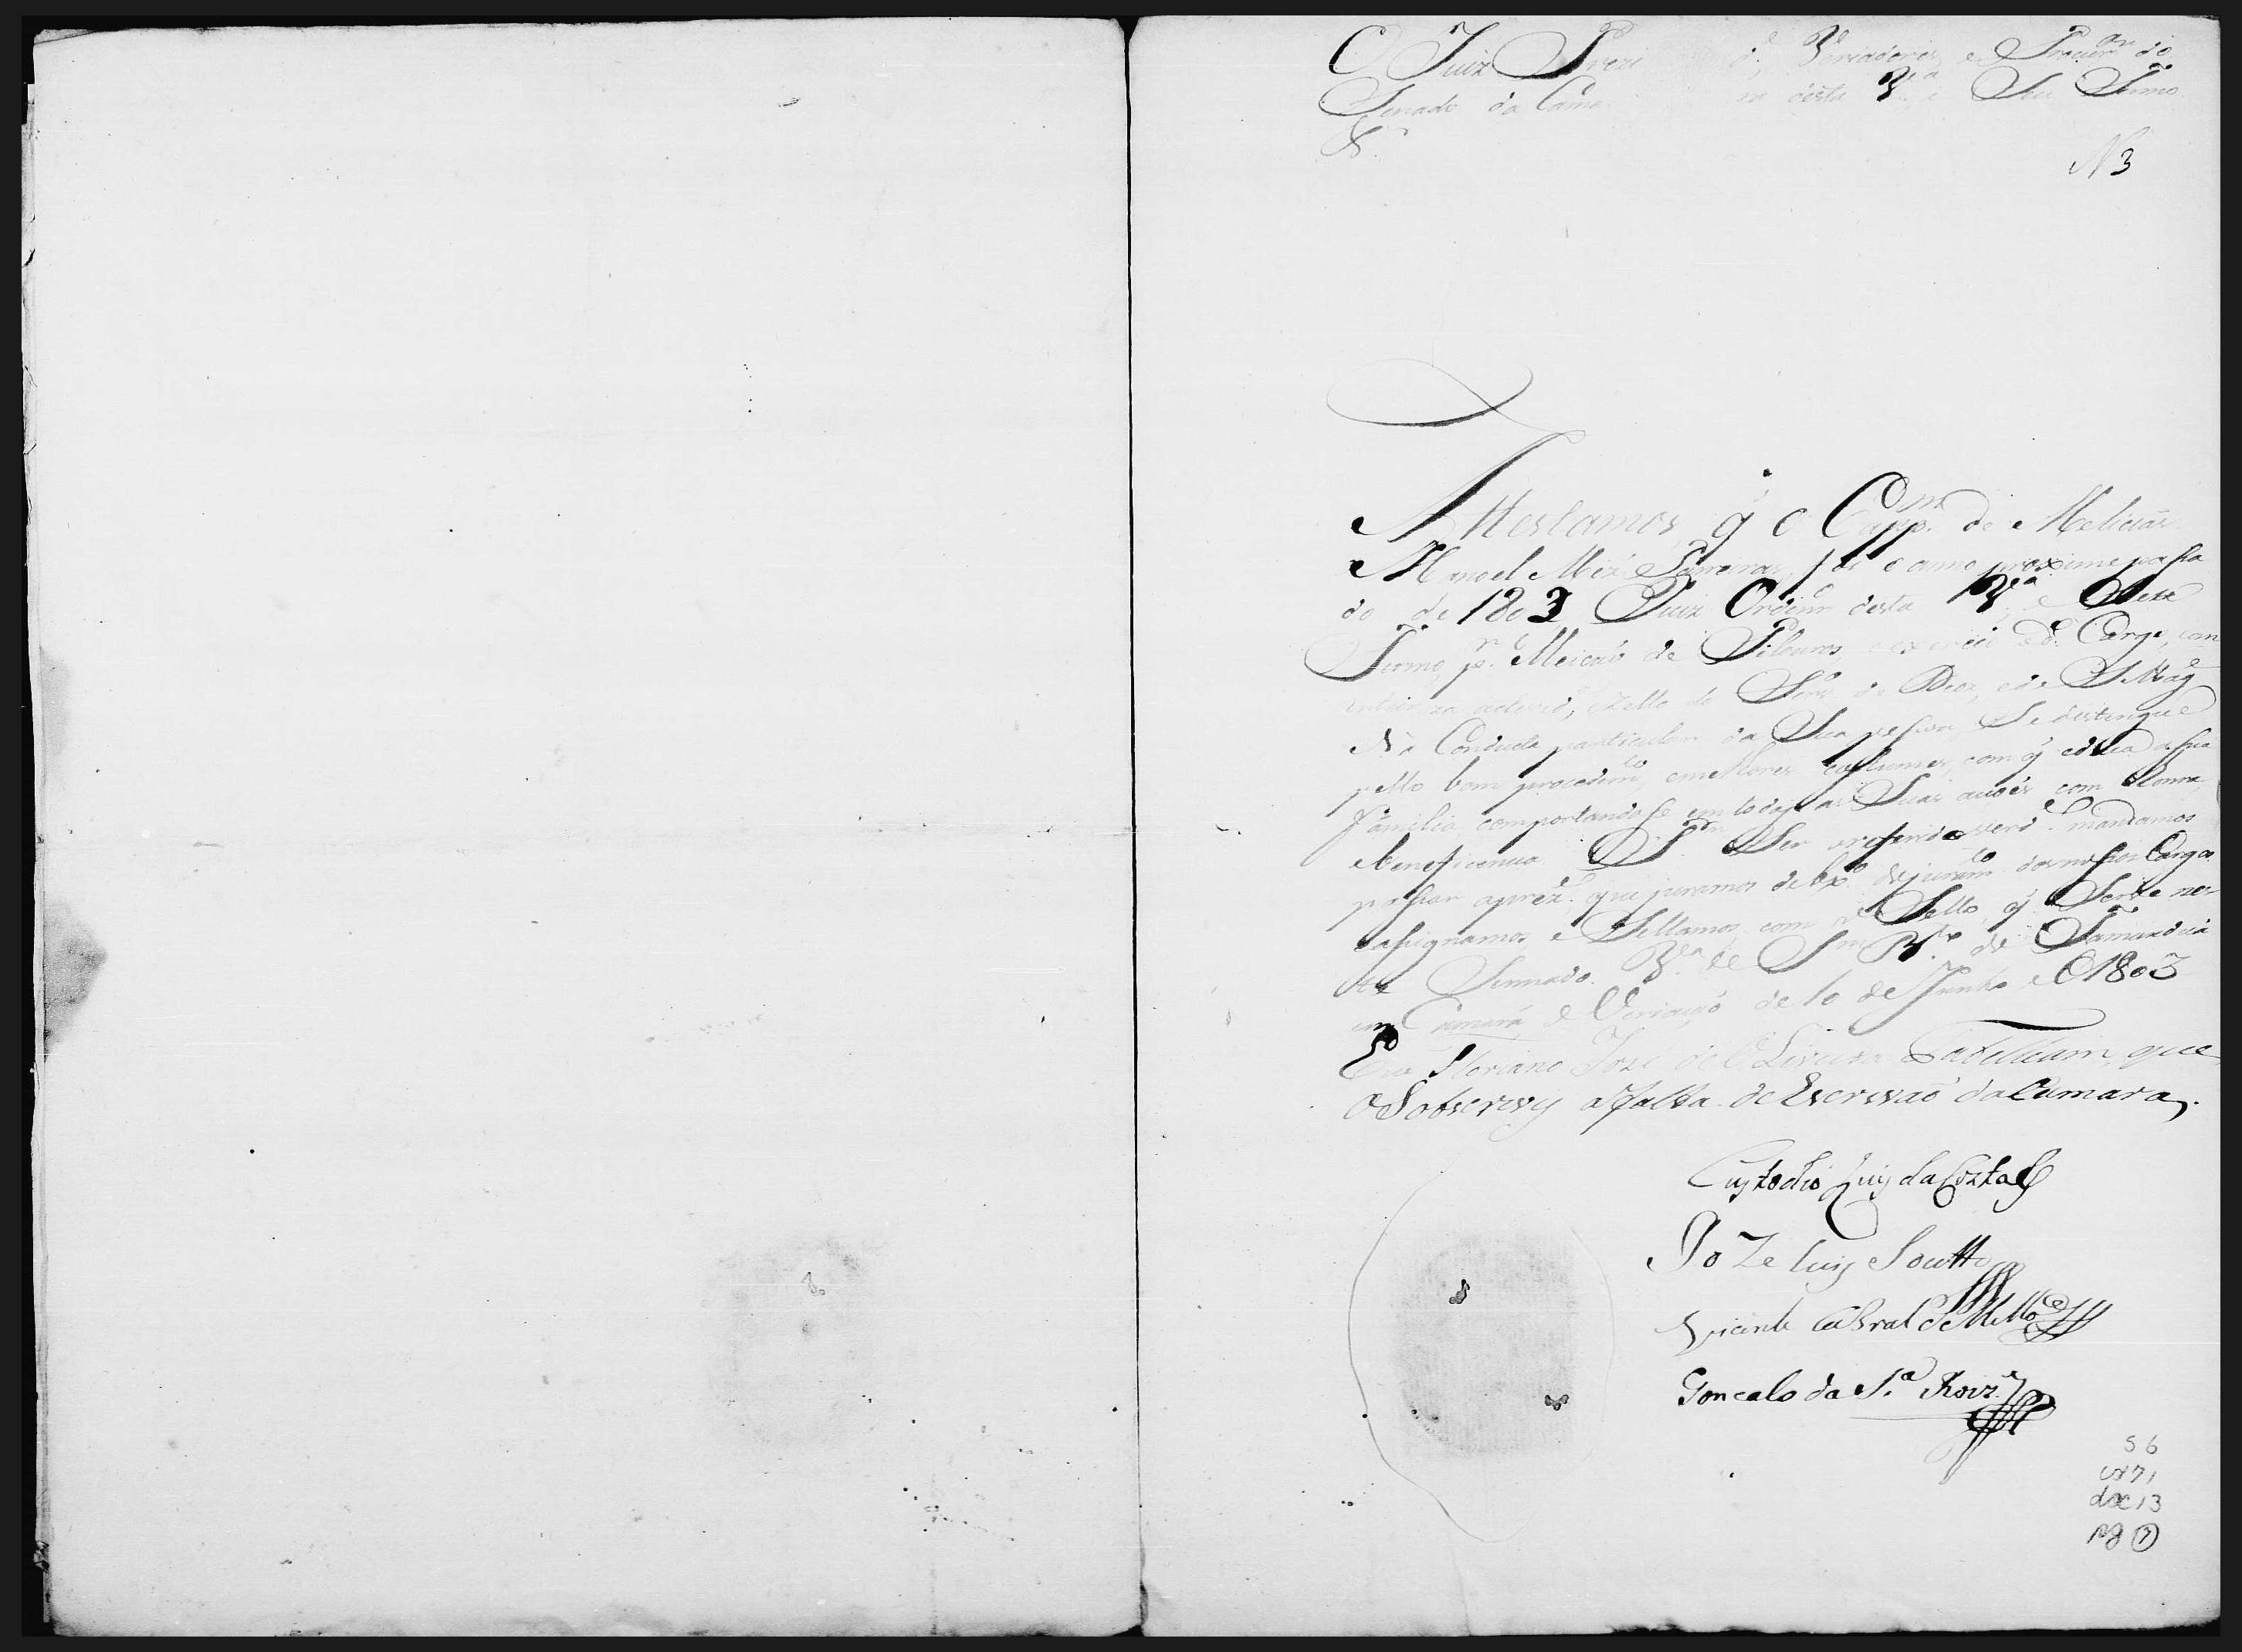 O Juiz Prezi d.e Veriadores e Procur.or do
Senado da Cama ra desta V.a e Seu Termo
&.
N 3
Attestamos, q̃ o Capp.m de Meliciãs
Manoel Miz̃ Parreiras, foi o anno proximo passa
do de 1802 Juiz Ordinr.o desta V.a e Seu
Termo, p.r Elleicaõ de Pilouros e exerceo o d.o Cargo, com
inteireza activid.e, e zello do Serv.o de Deos, e de S. Mag.e
Na Conducta particular da Sua pessoa, Se destingue
pello bom procedim.to, e melhores custumes, com q̃ educa a sua
familia, comportandosse em todas as Suas acoẽs com Honra,
e beneficencia. P.r Ser o referido verd.e mandamos
passar a prez.e que juramos debx.o do juram.to dos nossos Cargos
e assignamos, e Sellamos com o Sello, q̃ Serve nes-
te Sennado. V.a de S.m B.to de Tamanduá
em Camara, e Veriaçaõ de 10 de Junho de 1803
Eu Floriano Joze de Olivr.a Tabelleam que
O Sobscrevy a falta de Escrivaõ da Camara,
Custodio Luis da Costa
Joze Luis Soutto
Vicente Cabral de Mello
Goncalo da S.a Roiz
56
cx 71
doc 13
pg 7